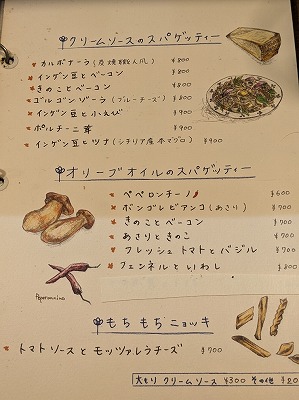 クリームソースのスパゲッティー
カルボナーラ（炭焼職人風） ¥800
インゲン豆とベーコン ¥800
きのことベーコン ¥800
ゴルゴンゾーラ（ブルーチーズ） ¥800
インゲン豆と小えび ¥900
ポルチーニ茸 ¥900
インゲン豆とツナ（シチリア産本マグロ） ¥900
オリーブオイルのスパゲッティー
ペペロンチーノ ¥600
ボンゴレビアンコ（あさり） ¥700
きのことベーコン ¥700
あさりときのこ ¥700
フレッシュトマトとバジル ¥700
フェンネルといわし ¥800
Peperoncino
もちもちニョッキ
トマトソースとモッツァレラチーズ ¥700
大もり クリームソース ¥300 その他 ¥20